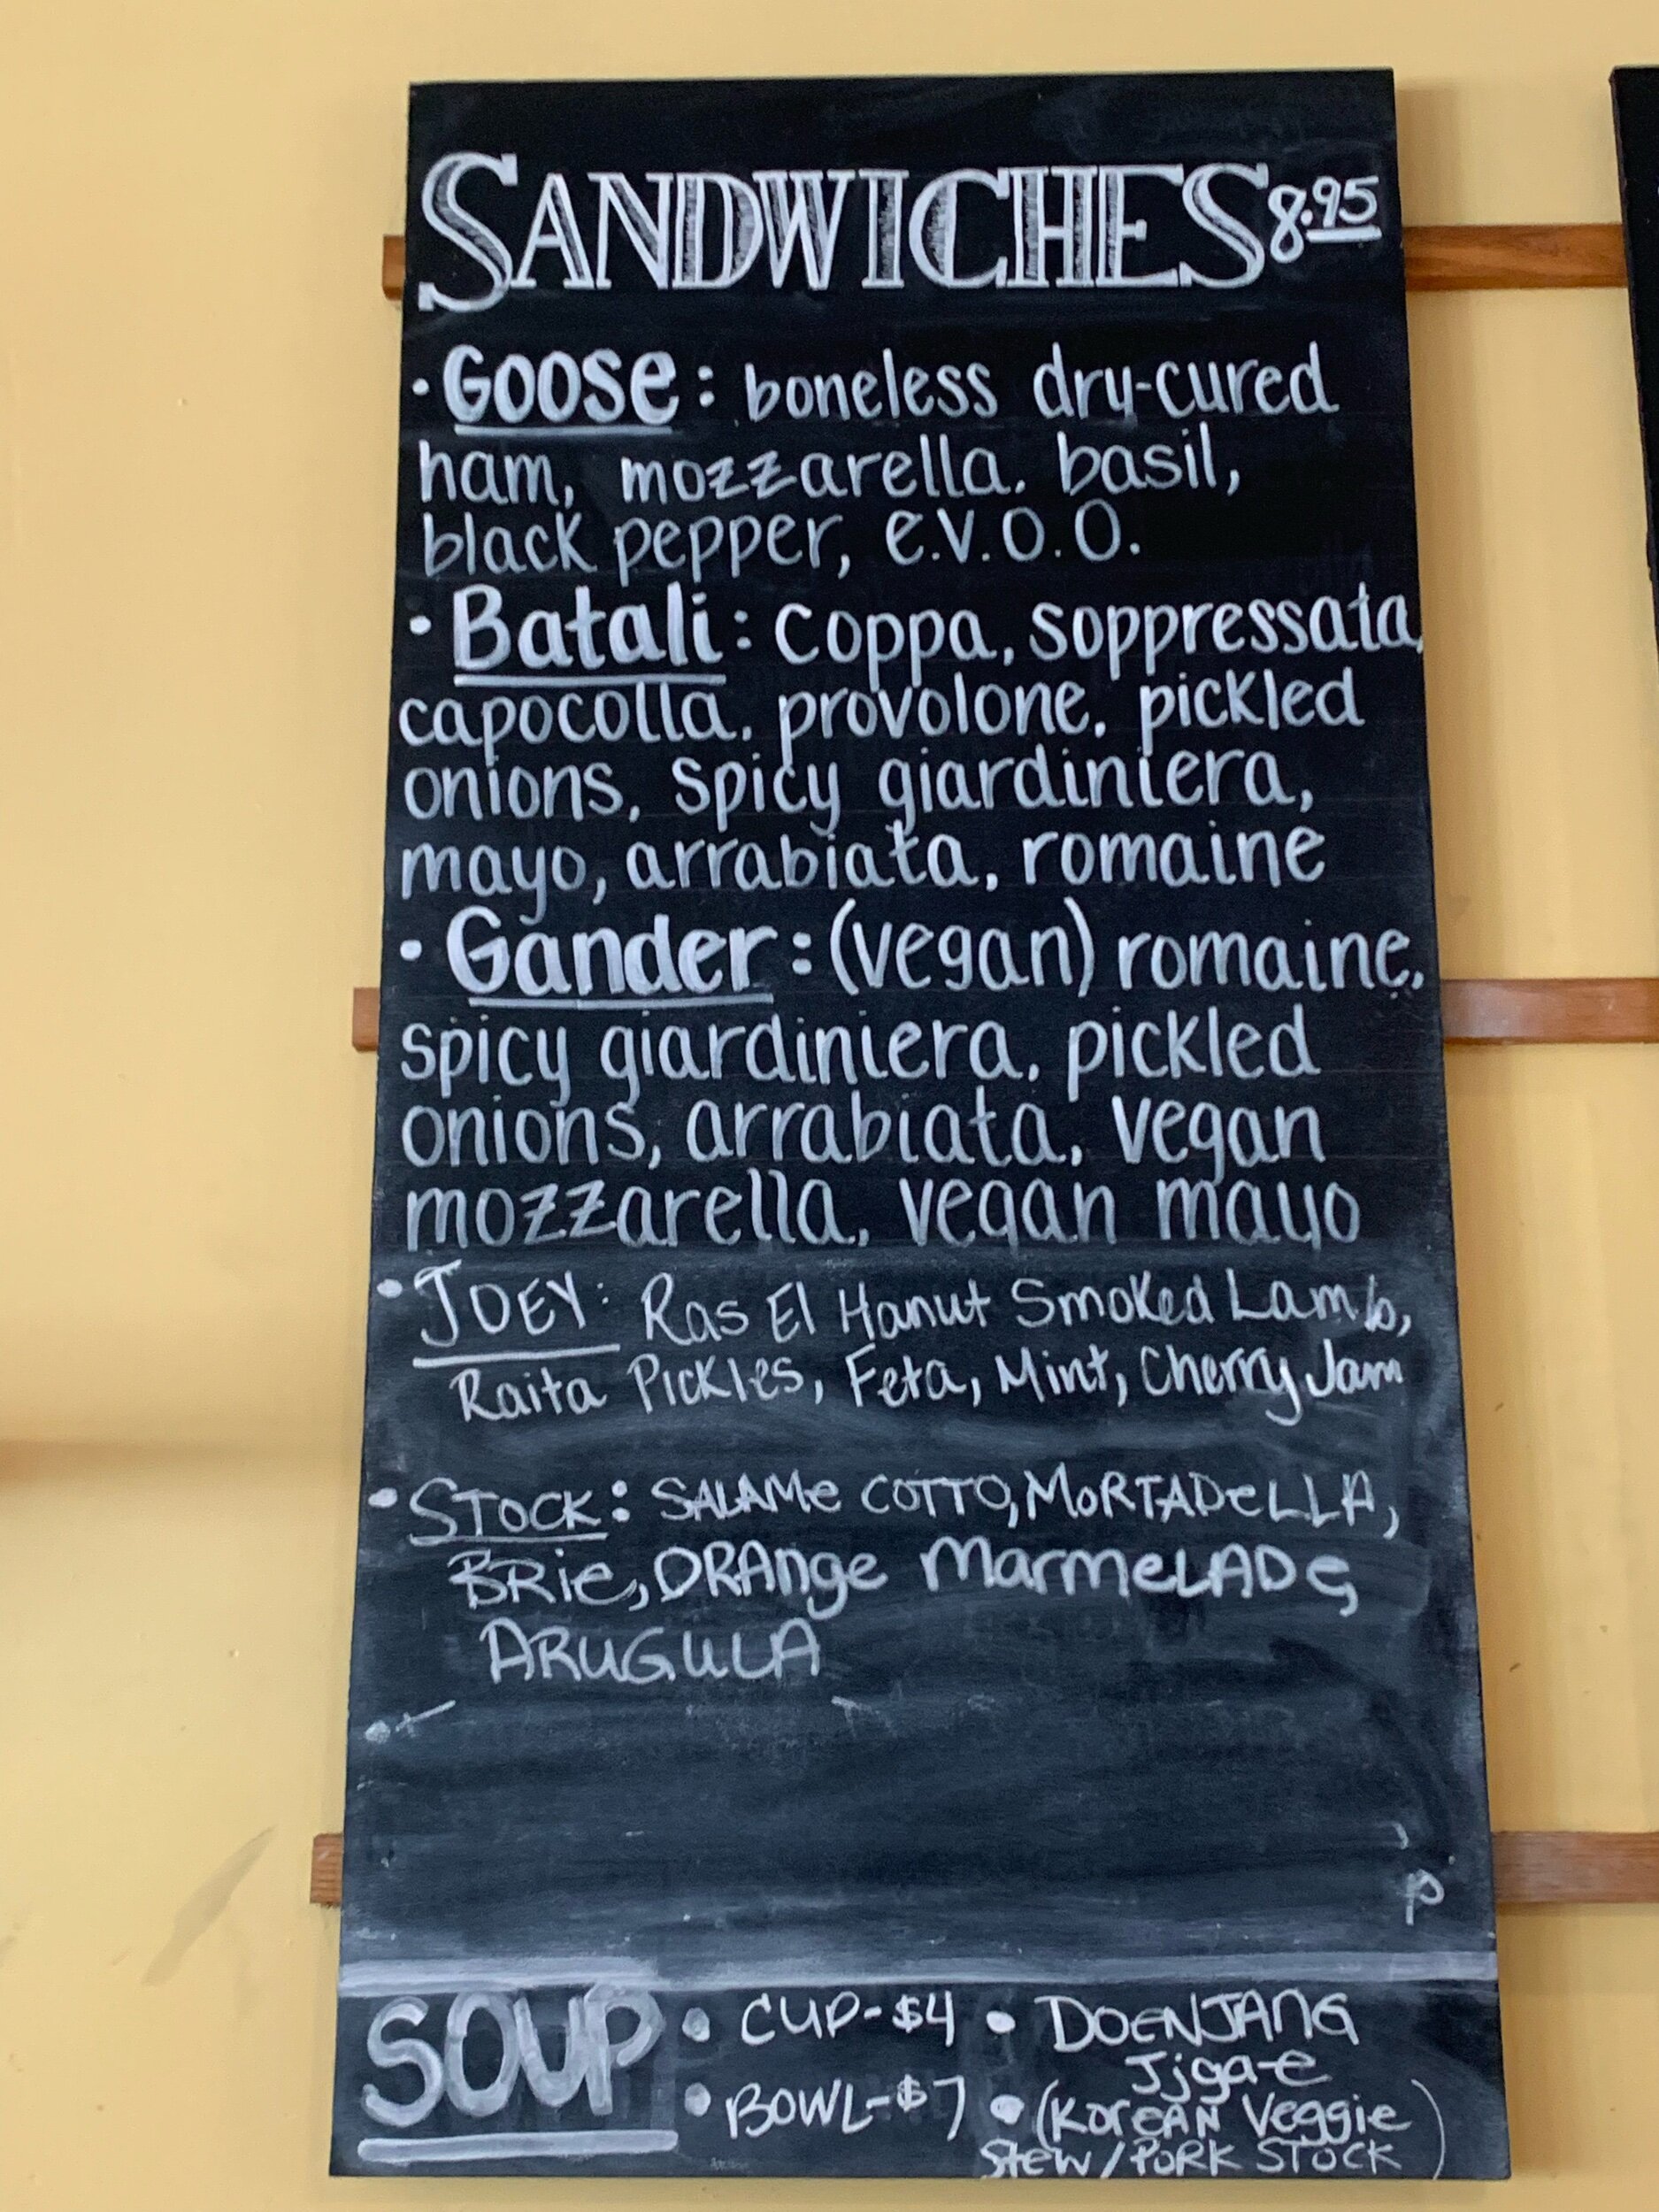 SANDWICHES 8.95
· Goose: boneless dry-cured
ham, mozzarella. basil,
black pepper, e.v.o.o.
· Batali: coppa, soppressata,
capocolla, provolone, pickled
onions, spicy giardiniera,
mayo, arrabiata, romaine
· Gander: (vegan) romaine,
spicy giardiniera, pickled
onions, arrabiata, vegan
mozzarella, vegan mayo
· JOEY: Ras El Hanut Smoked Lamb,
Raita Pickles, Feta, Mint, Cherry Jam
· STOCK: SALAMe COTTO, MORTADeLLA,
BRie, ORAnge MarmeLADe,
ARUGULA
SOUP · CUP-$4 · DOENJANG
Jjgae
· BOWL-$7 · (KoreAN Veggie
Stew/PORK STOCK)